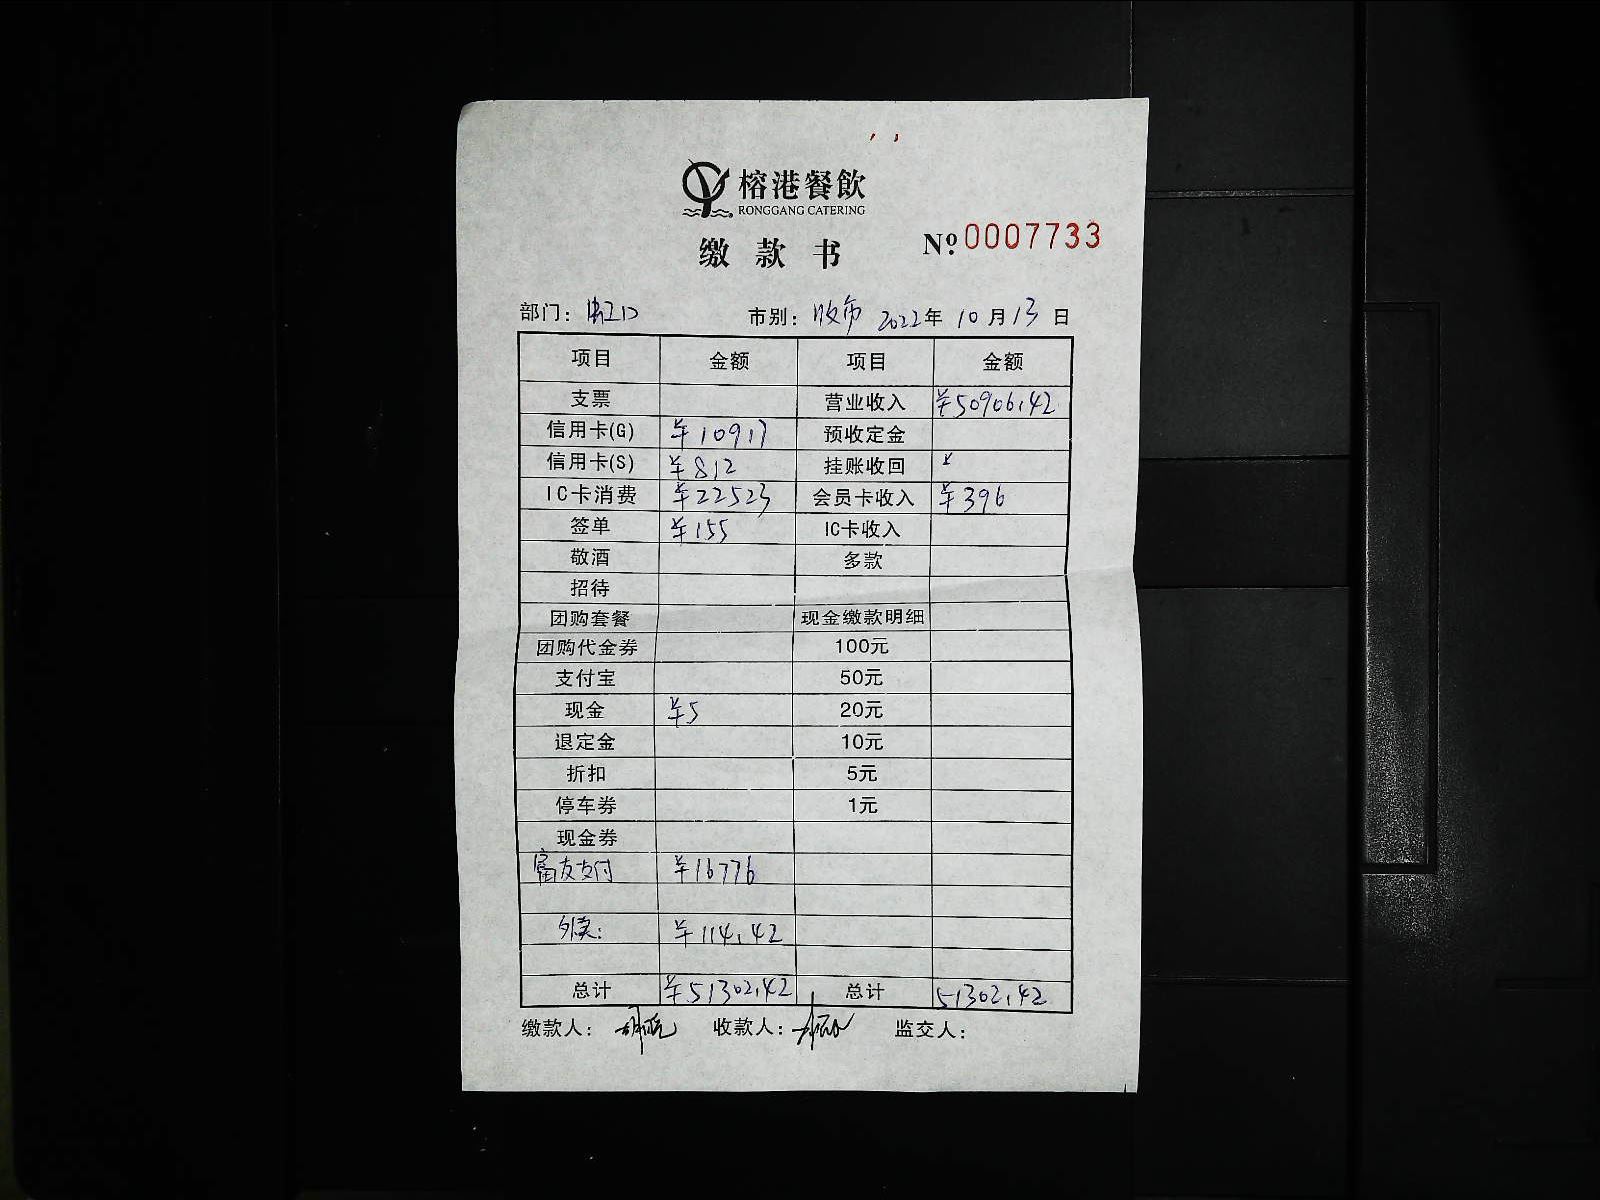 榕港餐飲
RONGGANG CATERING
缴款书 №0007733
部门： 市别：收市 2022年10月13日
项目 金额 项目 金额
支票 营业收入 ¥50906.42
信用卡(G) ¥10917 预收定金
信用卡(S) ¥812 挂账收回 ¥
IC卡消费 ¥22523 会员卡收入 ¥396
签单 ¥155 IC卡收入
敬酒 多款
招待
团购套餐 现金缴款明细
团购代金券 100元
支付宝 50元
现金 ¥5 20元
退定金 10元
折扣 5元
停车券 1元
现金券
富友支付 ¥16776
外卖： ¥114.42
总计 ¥51302.42 总计 51302.42
缴款人： 收款人： 监交人：